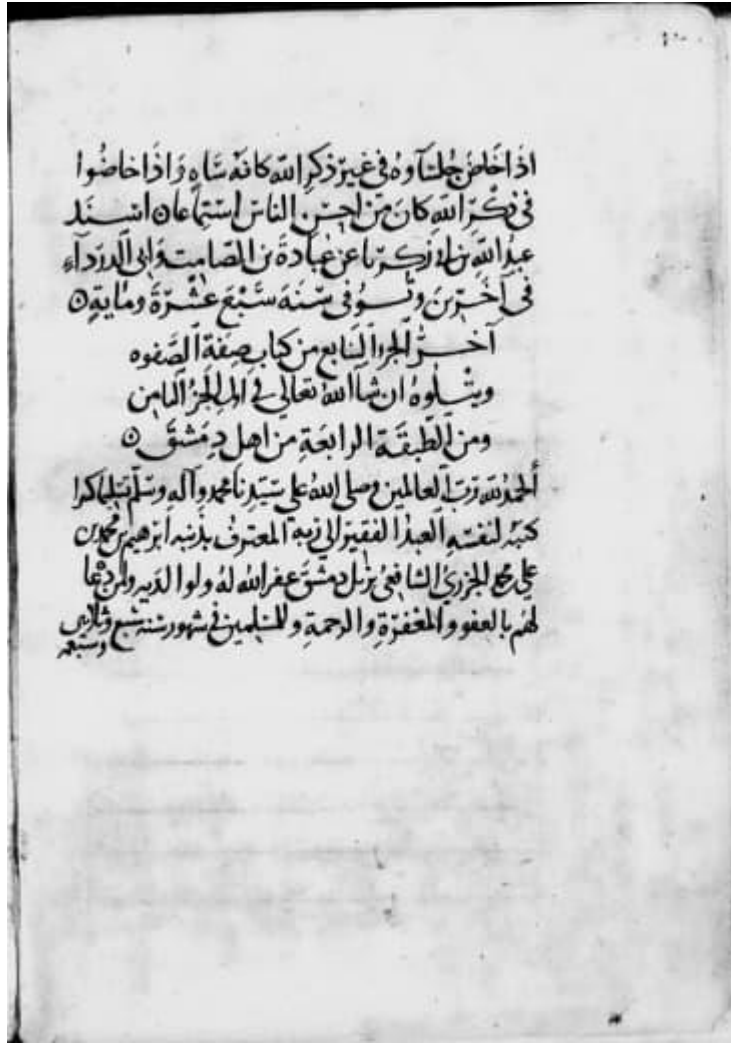 اذا خاض جلساوه في غير ذكر الله كانه ساه واذا خاضوا
في ذكر الله كان من احسن الناس استماعا ن اسند
عبد الله بن ابي زكريا عن عبادة بن الصامت وابي الدرداء
في آخرين وتوفي سنة سبع عشرة وماية ن
آخر الجزء السابع من كتاب صفة الصفوه
ويتلوه ان شا الله تعالى في اول الجزء الثامن
ومن الطبقة الرابعة من اهل دمشق ن
الحمد لله رب العالمين وصلى الله على سيدنا محمد وآله وسلم تسليما كثيرا
كتبه لنفسه العبد الفقير الى ربه المعترف بذنبه ابرهيم بن محمد بن
علي الجزري الشافعي نزيل دمشق غفر الله له ولوالديه ولمن دعا
لهم بالعفو والمغفرة والرحمة وللمسلمين في شهور سنه سبع وثلاثين
وسبعمه